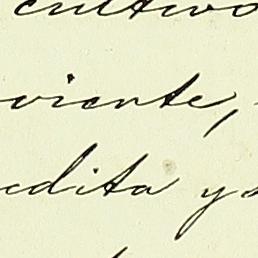 cultivo
viente,
edita y s